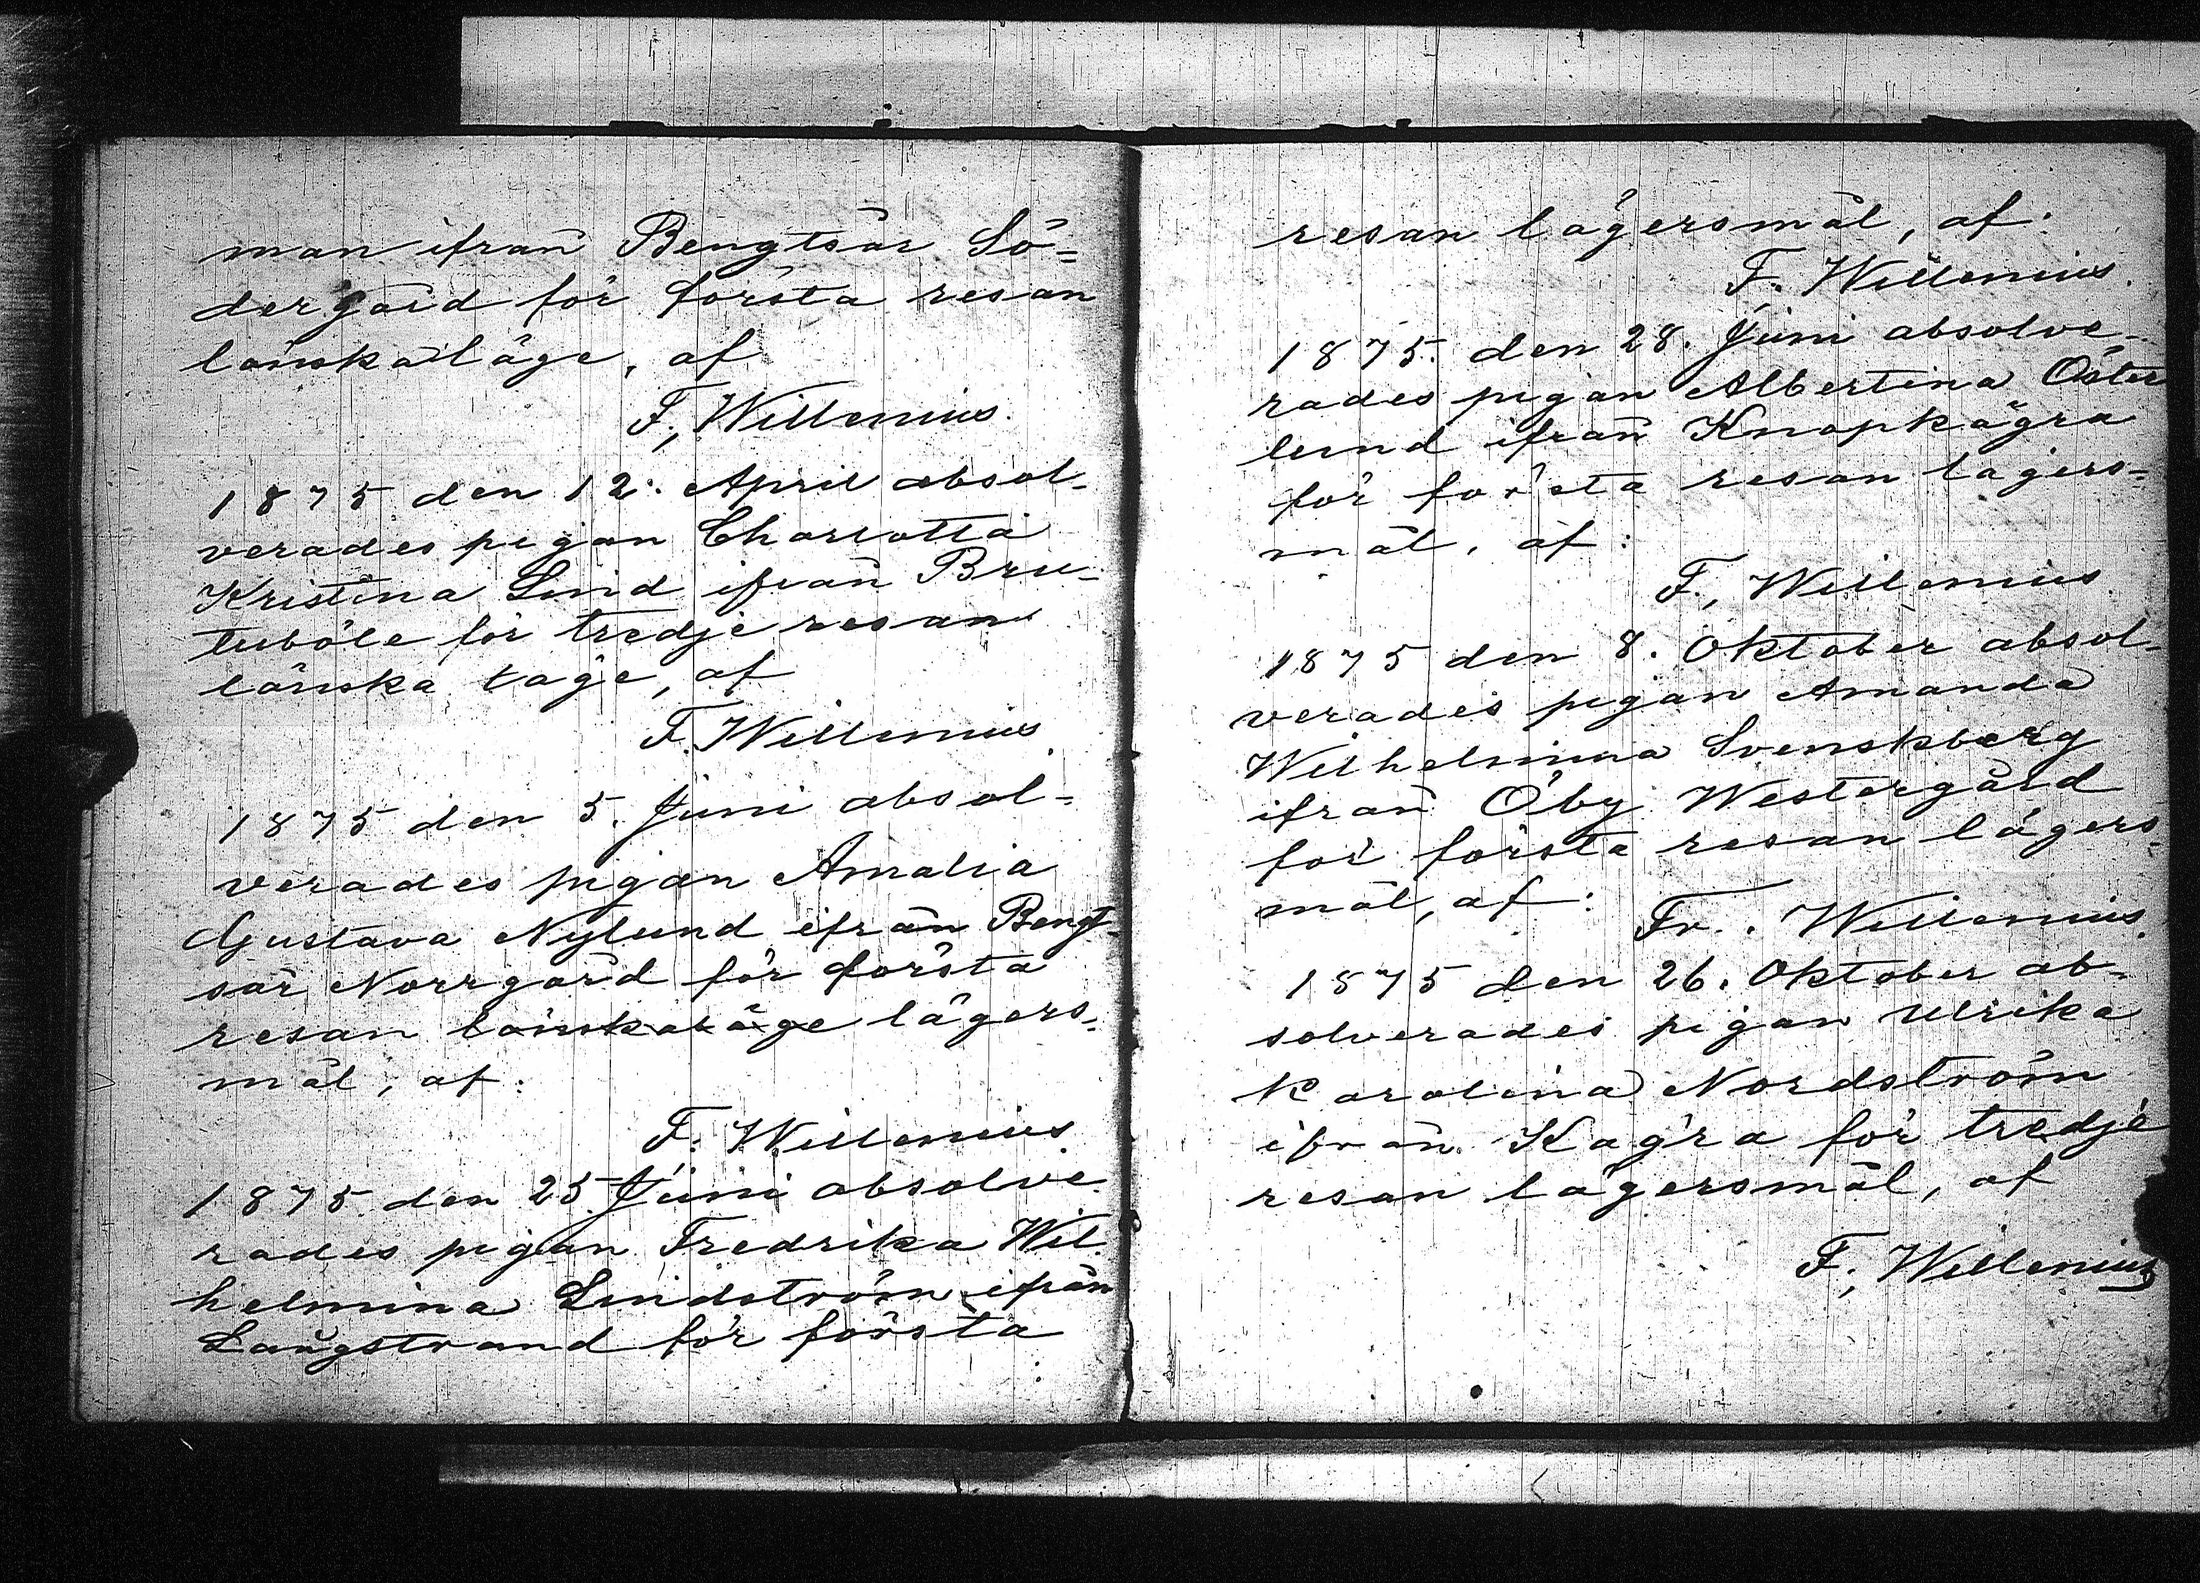 man ifrån Bengtsår Sö=
dergård för första resan
lönskaläge, af
F. Willenius.
1875 den 12. April absol-
verades pigan Charlotta
Kristina Lind ifrån Bru-
tuböle för tredje resan
lönska läge, af
F. Willenius.
1875 den 5. Juni absol=
verades pigan Amalia
Gustava Nylund ifrån Bengt-
sår Norrgård för första
resan lönskaläge lägers-
mål, af:
F. Willenius.
1875 den 25. Juni absolve-
rades pigan Fredrika Wil-
helmina Lindström ifrån
Långstrand för första
resan lägersmål, af:
F. Willenius.
1875. den 28. Juni absolve-
rades pigan Albertina Öster
lund ifrån Knapkägra
för första resan lägers=
mål, af:
F. Willenius.
1875 den 8. Oktober absol-
verades pigan Amanda
Wilhelmina Svenskberg
ifrån Öby Westergård
för första resan lägers-
mål, af:
Fr. Willenius.
1875 den 26. Oktober ab-
solverades pigan Ulrika
Karolina Nordström
ifrån Kagra för tredje
resan lägersmål, af
F. Willenius